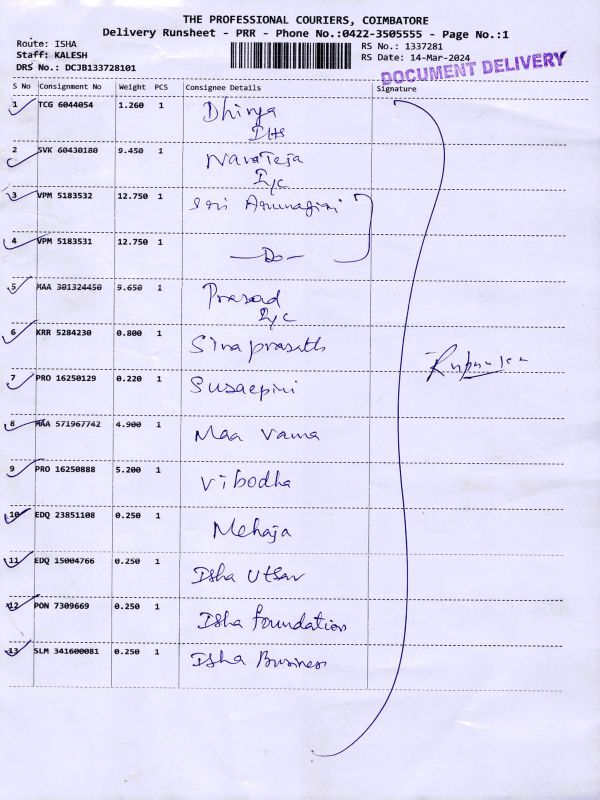 THE PROFESSIONAL COURIERS, COIMBATORE
Delivery Runsheet - PRR - Phone No.:0422-3505555 - Page No.:1
Route: ISHA
Staff: KALESH
DRS No.: DCJB133728101
RS No.: 1337281
RS Date: 14-Mar-2024
DOCUMENT DELIVERY
S No Consignment No Weight PCS Consignee Details Signature
1 TCG 6044054 1.260 1 Dhinya
IHS
2 SVK 60430180 9.450 1 Navateja
IYC
3 VPM 5183532 12.750 1 Sri Arunagiri
4 VPM 5183531 12.750 1 —Do—
5 MAA 301324450 9.650 1 Prasad
IYC
6 KRR 5284230 0.800 1 Sivaprasath
7 PRO 16250129 0.220 1
8 MAA 571967742 4.900 1 Maa Vama
9 PRO 16250888 5.200 1 Vibodha
10 EDQ 23851108 0.250 1 Mehaja
11 EDQ 15004766 0.250 1 Isha Utsav
12 PON 7309669 0.250 1 Isha Foundation
13 SLM 341600081 0.250 1 Isha Business